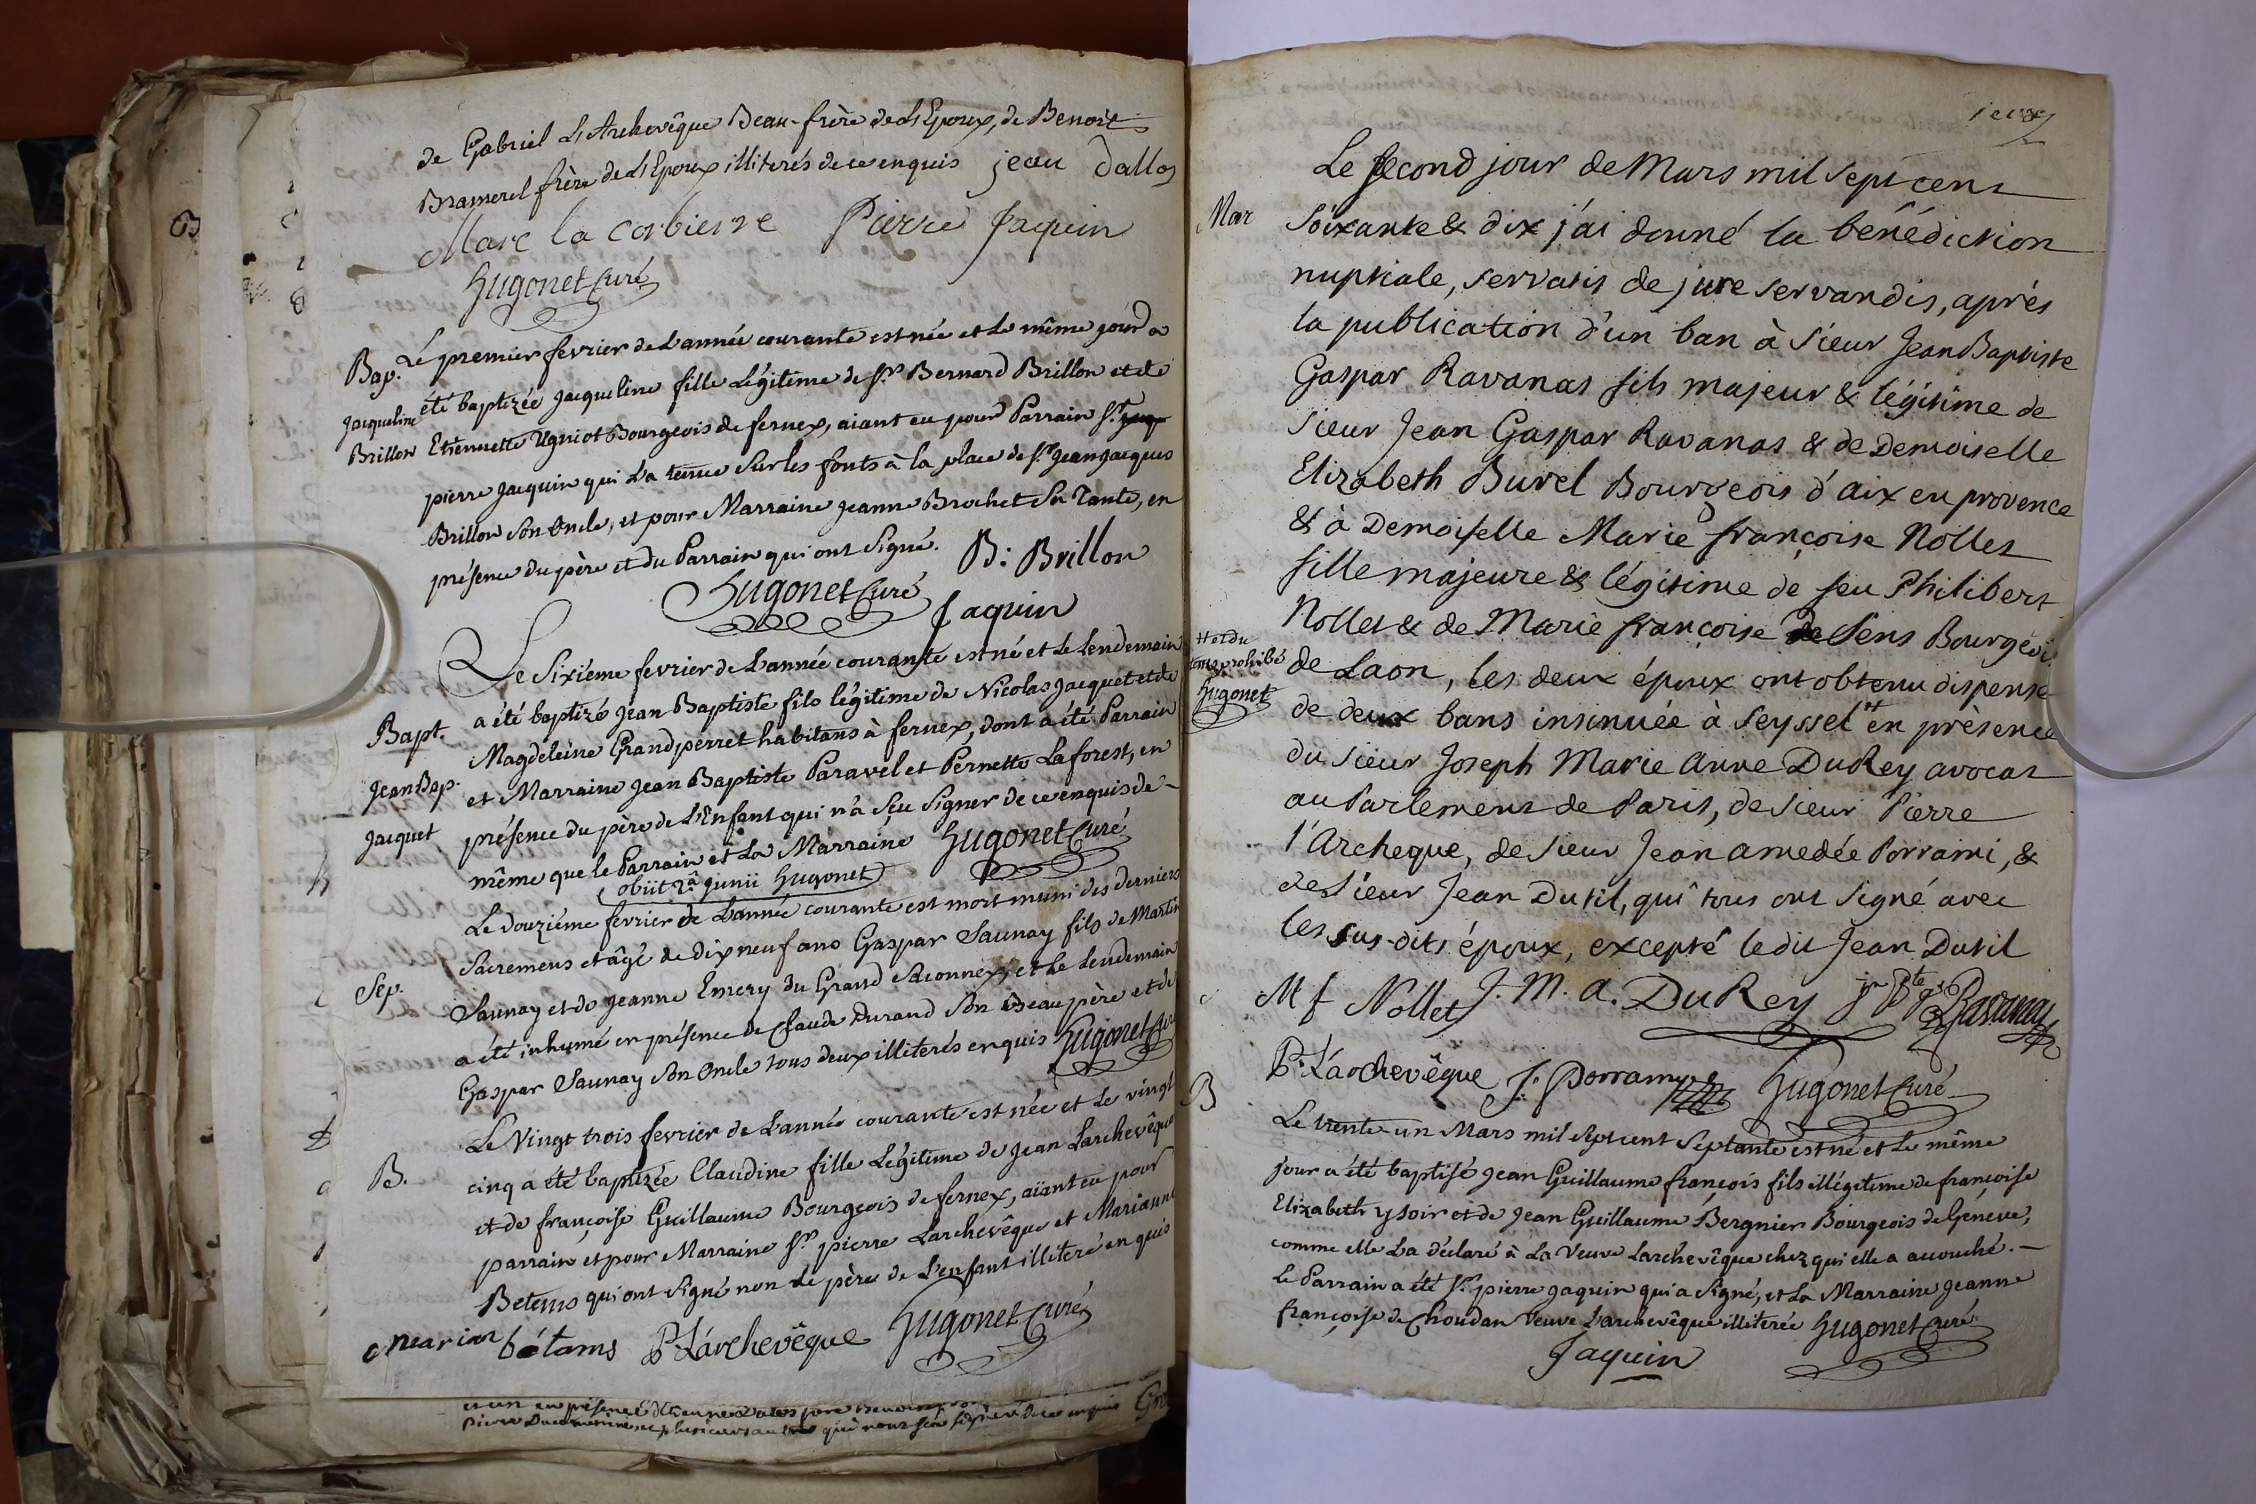 de Gabriel L'Archevêque Beau-frère de L'Epoux, de Benoit
Bramerel frère de L'Epoux illiterés de ce enquis jean Dallos
Marc la Corbiere Pierre Jaquin
Hugonet Curé
Bap. Le premier fevrier de L'année courante est née et Le même jour a
Jacqueline été baptizée Jacqueline fille Légiteme de Sr. Bernard Brillon et de
Brillon Etiennette Ugniot Bourgeois de fernex, aiant eu pour Parrain Sr.
pierre Jacquin qui L'a tenue Sur les fonts à la place de Sr. Jean Jacques
Brillon Son Oncle, et pour Marraine Jeanne Brochet Sa Tante, en
présence du père et du Parrain qui ont Signé. B: Brillon
Hugonet Curé
Jaquin
Le Sixiéme fevrier de L'année courante est né et Le Lendemain
Bapt. a été baptizé Jean Baptiste fils légitime de Nicolas Jacquet et de
Magdeleine Grandperret habitans à fernex, dont a été Parrain
Jean Bap. et Marraine Jean Baptiste Paravel et Pernette Laforest, en
Jacquet présence du père de L'Enfant qui n'a Seu Signer de ce enquis de
même que le Parrain et La Marraine Hugonet Curé
obiit 2a Junii Hugonet
Le douziéme fevrier de L'année courante est mort muni des derniers
Sep. Sacremens et âgé de dix neuf ans Gaspar Saunay fils de Martin
Saunay et de Jeanne Emery du Grand Saconnex, et Le Lendemain
a été inhumé en présence de Claude Durand Son Beau père et de
Gaspar Saunay Son Oncle tous deux illiterés enquis Hugonet Curé
Le Vingt trois fevrier de L'année courante est née et Le vingt
B. cinq a été baptizée Claudine fille Légitime de Jean Larchevêque
et de françoise Guillaume Bourgeois de fernex, aïant eu pour
parrain et pour Marraine Sr. pierre Larchevêque et Marianne
Betems qui ont Signé non Le père de L'enfant illiteré enquis
marian bétams P: L'archevêque Hugonet Curé
Le second jour de Mars mil sept cent
Mar soixante & dix j'ai donné la bénédiction
nuptiale, servatis de jure servandis, aprés
la publication d'un ban à Sieur Jean Baptiste
Gaspar Ravanas fils majeur & légitime de
Sieur Jean Gaspar Ravanas & de Demoiselle
Elizabeth Burel Bourgeois d'aix en provence
& à Demoiselle Marie françoise Nollet
fille majeure & légitime de feu Philibert
Nollet & de Marie françoise de Sens Bourgeois
de Laon, les deux époux ont obtenu dispense
de deux bans insinuée à Seyssel ++ en présence
++ et du
tems prohibé
Hugonet
du Sieur Joseph Marie Anne DuRey avocat
au Parlement de Paris, de Sieur Pierre
l'Archeque, de Sieur Jean amedée Porrami, &
de Sieur Jean Dutil, qui tous ont signé avec
les sus-dits époux, excepté ledit Jean Dutil
M f Nollet J. M. a. DuRey jn Bte gas Ravanas
P: L'archevêque J. Porramy Hugonet Curé
B Le trente-un Mars mil sept cent septante est né et Le même
jour a été baptisé Jean Guillaume françois fils illégiteme de françoise
Elizabeth ysoir et de Jean Guillaume Bergnier Bourgeois de Geneve,
comme elle L'a déclaré à La Veuve Larchevêque chez qui elle a accouché.
Le Parrain a été Sr. pierre Jaquin qui a Signé, et La Marraine Jeanne
françoise de Choudan Veuve Larchevêque illiterée Hugonet Curé
Jaquin